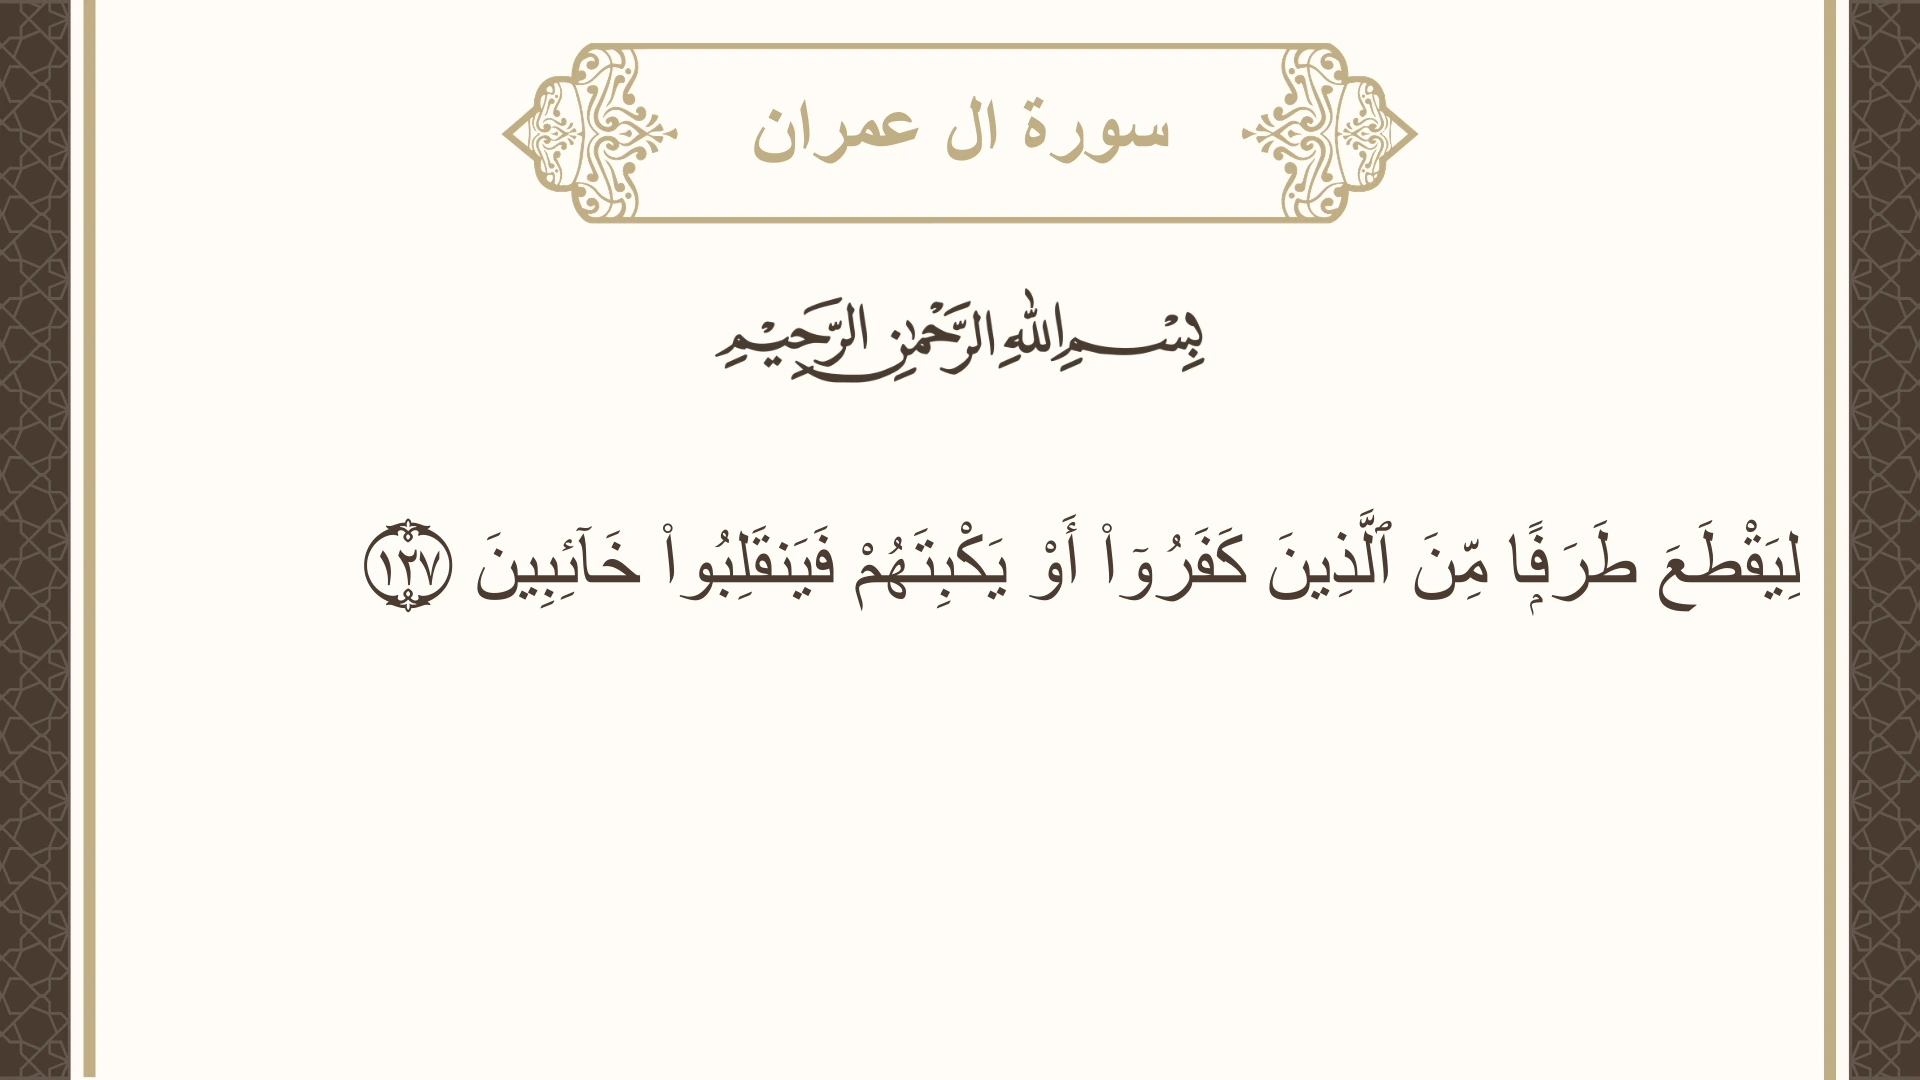 سورة ال عمران
بِسْمِ اللهِ الرَّحْمٰنِ الرَّحِيْمِ
لِيَقْطَعَ طَرَفًۭا مِّنَ ٱلَّذِينَ كَفَرُوٓا۟ أَوْ يَكْبِتَهُمْ فَيَنقَلِبُوا۟ خَآئِبِينَ ١٢٧